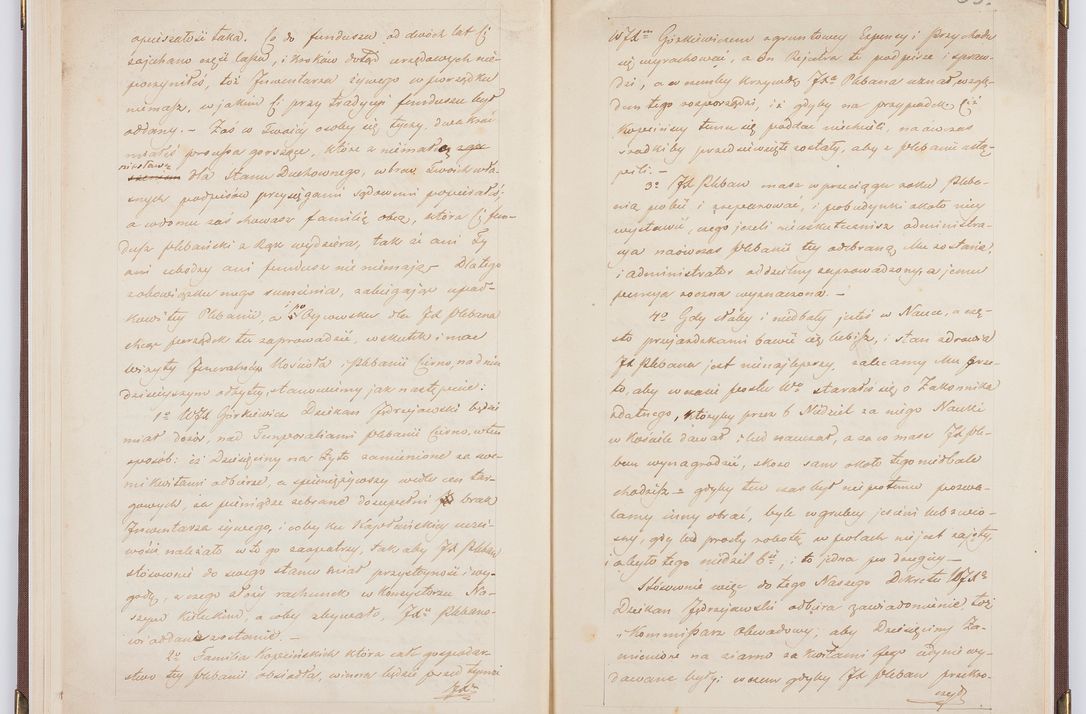 opieszałość taka. Co do funduszu od dwóch lat Ci
zajechano część lasku, i kroków dotąd urzędowych nie
poczyniłeś, też Inwentarza żywego w porządku
niemasz, w jakim Ci przy tradycyi funduszu był
oddany. – Zaś co Twoiej osoby się tyczy, dwa kroć
miałeś processa gorszące, które z niemałą
dla Stanu Duchownego, wbrew Twoich wła-
snych podpisów przysięgami sądowemi popierałeś,
a w domu zaś chowasz familię obcą, która Ci fun-
dusz plebański z rąk wydziera, tak że ani Ty
ani ubodzy ani fundusz nic niemają – Dlatego
z obowiązku nego sumienia, zabiegając upad-
kowi tey Plebanii, a dla Jx Plebana
chcąc porządek tu zaprowadzić, w skutku i moc
wizyty Jeneralney Kościoła i Plebanii Cierno, na dniu
dzisieyszym odbytey, stanowimy jak następuie:
1º WJX Górkiewicz Dziekan Jędrzejowski będzie
miał dozór, nad Temporaliami plebanii Cierno, w ten
sposób: iż Dziesięciny na żyto zamienione za swe-
mi kwitami odbierze, a spieniężywszy wedle cen tar-
gowych, za pieniądze zebrane dozupełni brak
Inwentarza żywego, i coby ku Kapłańskiey uczci-
wości należało w to go zaopatrzy, tak aby Jx Pleban
stósownie do swego stanu miał przystoyność i wy-
godę, z czego złoży rachunek w Konsystorzu Na-
szym Kieleckim, a coby zbywało, Jxu Plebano-
wi oddane zostanie. –
2º Familia Kopcińskich która całe gospodar-
stwo tey plebanii obsiadła, winna będzie przed tymże
WJXem Górkiewiczem z gruntowey Expensy i Przychodu
się wyrachować, a On Rejestra te podpisze i spraw-
dzi, a w miarę krzywdy Jxa Plebana uznał, wzglę-
dem tego rozporządzi, iż gdyby na przypadek Ciż
Kopcińscy temu się poddać niechcieli, na ówczas
środki by przedsięwzięte zostały, aby z plebanii ustą-
pili. –
3º Jx Pleban masz w przeciągu roku Pleba-
nią pobić i zreperować, i pobudynki około niey
wystawić, czego jeżeli nieuskutecznisz administra-
cya naówczas plebanii tey odebraną Mu zostanie,
i administrator oddzielny zaprowadzony, a jemu
pensya roczna wyznaczona. –
4º Gdy słaby i niedbały jesteś w Nauce, a czę-
sto przejazdkami bawić się lubisz, i stan zdrowia
Jx Plebana jest nienajlepszy, zalecamy Mu prze-
to, aby w czasie postu Wo starałeś się o Zakonnika
zdatnego, któryby przez 6 Niedziel za niego Nauki
w Kościele dawał i lud nauczał, a za co masz Jx Ple-
ban wynagrodzić, skoro sam około tego niedbale
chodzisz – gdyby ten czas był nie potemu pozwa-
lamy inny obrać, byle w grubey jesieni lub z wio-
sny, gdy lud prosty robotą w polach nie jest zajęty,
i abyło tego niedziel 6ć, i to jedna po drugiey –
Stósownie więc do tego Naszego Dekretu WJXu
Dziekan Jędrzejowski odbiera zawiadomienie, toż
i Kommissarz Obwodowy, aby Dziesięciny Za-
mienione na ziarno za kwitami jego jedynie wy-
dawane były: w czem gdyby Jx Pleban przekro-